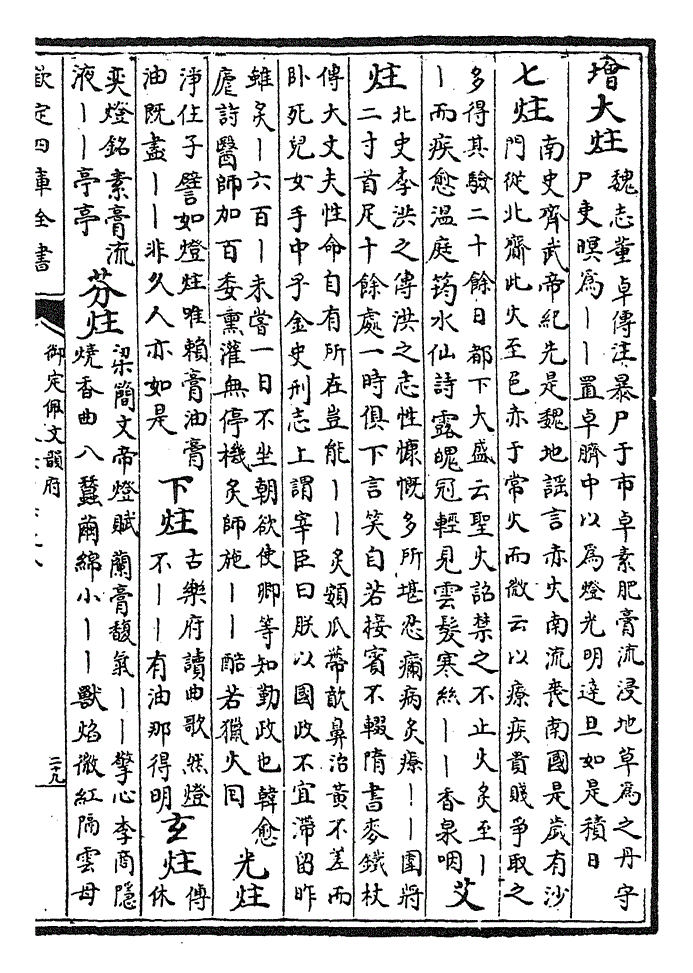 增大炷
魏志董卓傳注暴尸于市卓素肥膏流浸地草為之丹守
尸吏暝為丨丨置卓臍中以為燈光明達旦如是積日
七炷
南史齊武帝紀先是魏地謡言赤火南流喪南國是歲有沙
門從北齎此火至色赤于常火而微云以療疾貴賤爭取之
多得其驗二十餘日都下大盛云聖火詔禁之不止火灸至丨
丨而疾愈温庭筠水仙詩露魄冠輕見雲髮寒絲丨丨香泉咽
艾
炷
北史李洪之傳洪之志性慷慨多所堪忍病灸療丨丨圍將
二寸首足十餘處一時俱下言笑自若接賓不輟隋書麥鐵杖
傳大丈夫性命自有所在豈能丨丨灸頞瓜蔕歕鼻治黄不差而
卧死兒女手中乎金史刑志上謂宰臣曰朕以國政不宜滯留昨
雖灸丨六百丨未嘗一日不坐朝欲使卿等知勤政也韓愈
詩醫師加百熏灌無停機灸師施丨丨酷若獵火圍
光炷
淨住子譬如燈炷唯賴膏油膏
油既盡丨丨非久人亦如是
下炷
古樂府讀曲歌然燈
不丨丨有油那得明
玄炷
傅
休
奕燈銘素膏流
液丨丨亭亭
芬炷
梁簡文帝燈賦蘭膏馥氣丨丨擎心李商隱
燒香曲八蠶繭綿小丨丨獸焰微紅隔雲母
欽定四庫全書
御定佩文韻府
二九